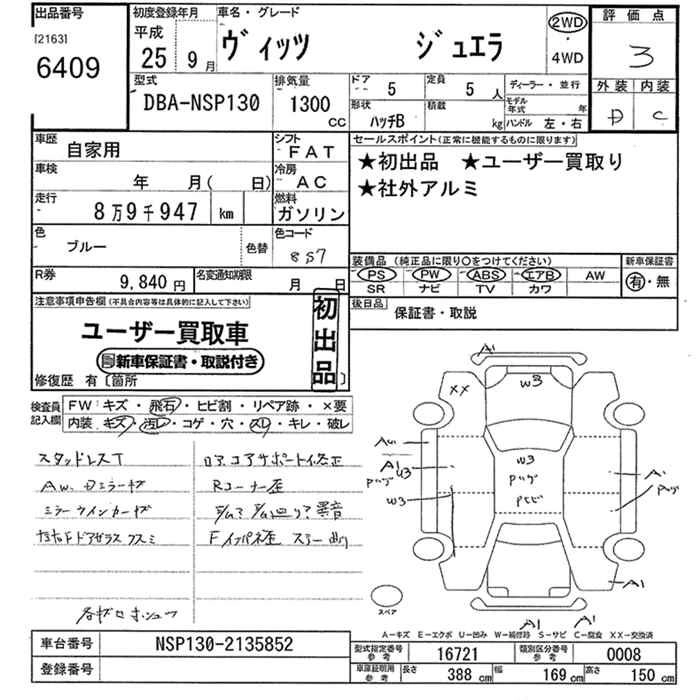 出品番号
[2163]
6409
初度登録年月
平成
25 9月
車名・グレード
ヴィッツ ジュエラ
2WD
・
4WD
評価点
3
外装 内装
D C
型式
DBA-NSP130
排気量
1300
CC
ドア
5
定員
5人
形状
ハッチB
積載
kg
ディーラー・並行
モデル年式 年
ハンドル 左・右
車歴
自家用
シフト
FAT
車検
年 月( 日)
冷房
AC
走行
8万9千947 km
燃料
ガソリン
色
ブルー
色替
色コード
8S7
R券
9,840円
名変通知期限
月 日
セールスポイント(正常に機能するものに限ります)
★初出品 ★ユーザー買取り
★社外アルミ
装備品 (純正品に限り〇をつけてください)
PS PW ABS エアB AW
SR ナビ TV カワ
新車保証書
有・無
後日品
保証書・取説
注意事項申告欄(不具合内容等は具体的に記入して下さい)
ユーザー買取車
新車保証書・取説付き
初出品
修復歴 有〔箇所 〕
検査員記入欄
FW:キズ・飛石・ヒビ割・リペア跡・×要
内装:キズ・汚レ・コゲ・穴・スレ・キレ・破レ
スタッドレスT
ミラーウインカーキズ
Rコーナー歪
A1
XX
W3
W3
A1
W3
W3
A1
A1
A1
A1
スペア
A－キズ E－エクボ U－凹み W－補修跡 S－サビ C－腐食 XX－交換済
車台番号
NSP130-2135852
登録番号
型式指定番号
参考
16721
類別区分番号
参考
0008
車庫証明用
参考
長さ 388 cm
幅 169 cm
高さ 150 cm